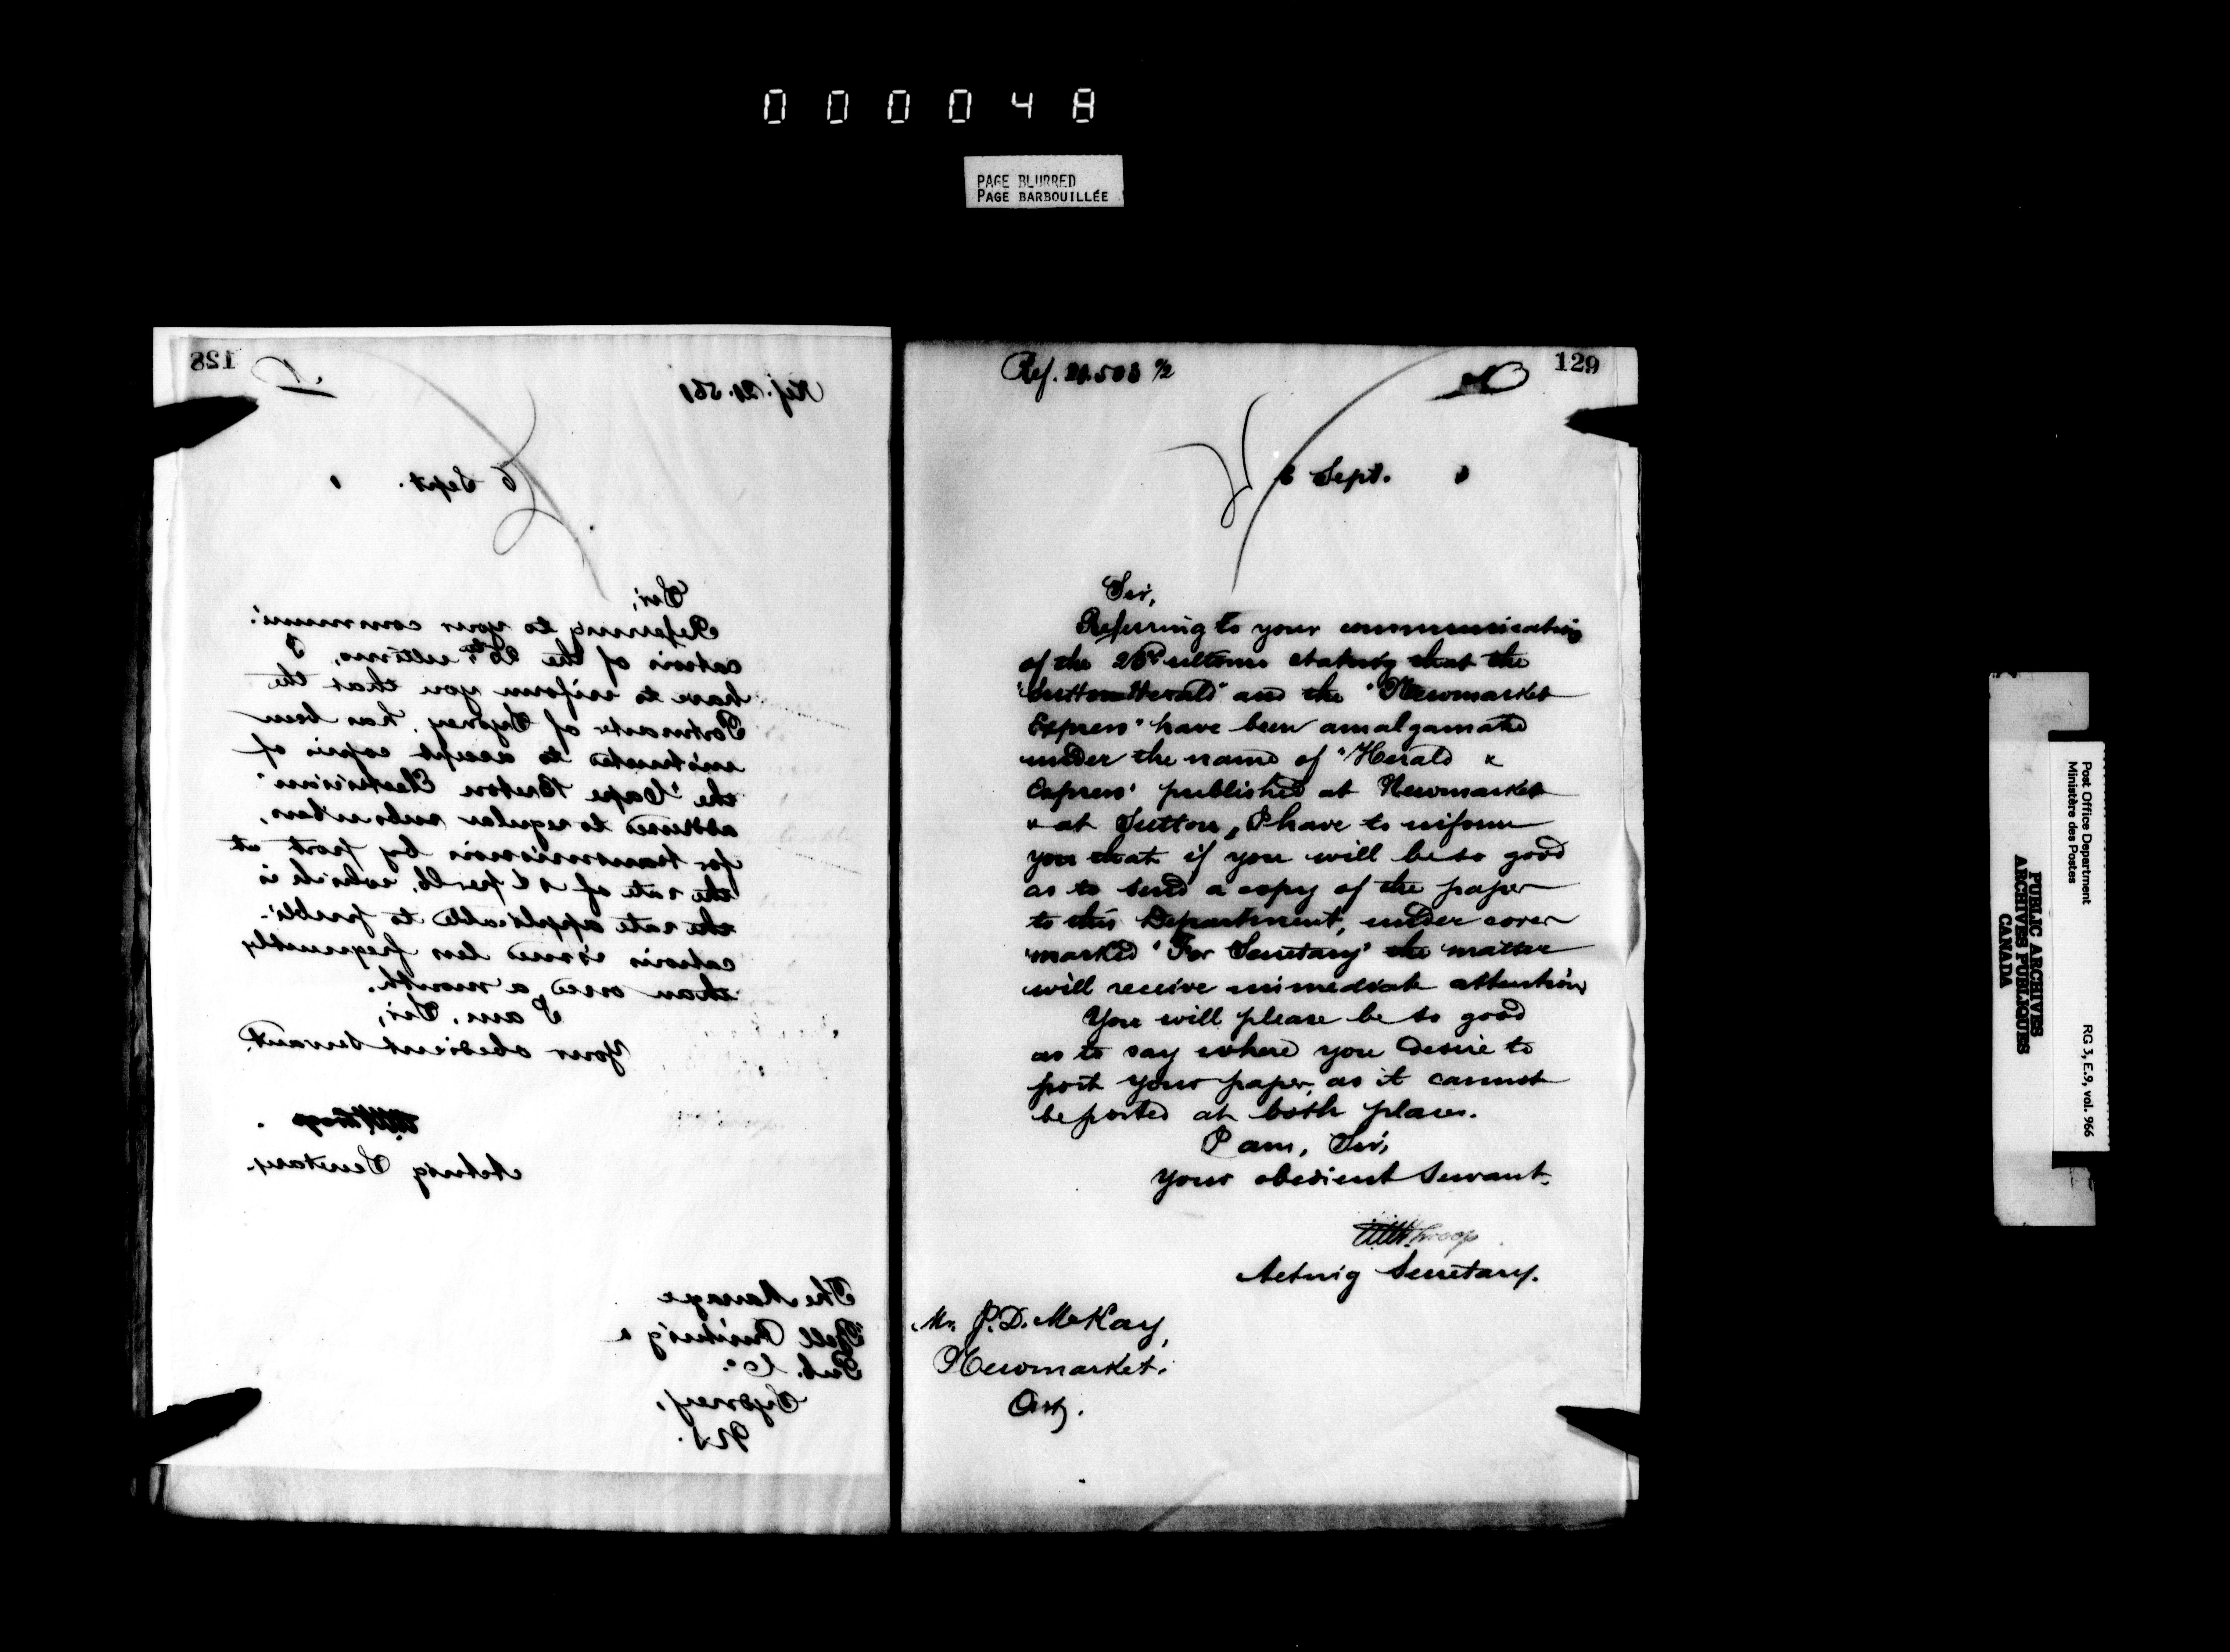 000048
PAGE BLURRED
PAGE BARBOUILLÉE
128
Ref. 21.561
6 Sept. 1
Sir,
Referring to your communi-
cation of the 26th, ultimo, I
have to inform you that the
Postmaster of Sydney, has been
instructed to accept copies of
the "Cape Breton Electrician"
addressed to regular subscribers,
for transmission by post at
the rate of 1¢ per lb, which is
the rate applicable to publi-
cations issued less frequently
than once a month.
I am, Sir,
Your obedient Servant.
Acting Secretary.
The Manager
Bell Printing &
Pub. Co.
Sydney,
N.S.
129
Ref. 21.503 1/2
6 Sept. 1
Sir,
Referring to your communication
of the 23rd ultimo stating that the
"Sutton Herald" and the "Newmarket
Express" have been amalgamated
under the name of "Herald &
Express" published at Newmarket
& at Sutton, I have to inform
you that if you will be so good
as to send a copy of the paper
to this Department, under cover
marked "For Secretary" the matter
will receive immediate attention
You will please be so good
as to say where you desire to
post your paper, as it cannot
be posted at both places.
I am, Sir,
Your obedient Servant.
Throop
Acting Secretary.
Mr. J. D. McKay,
Newmarket.
Ont.
Post Office Department
Ministère des Postes
RG 3, E.9, vol. 966
PUBLIC ARCHIVES
ARCHIVES PUBLIQUES
CANADA